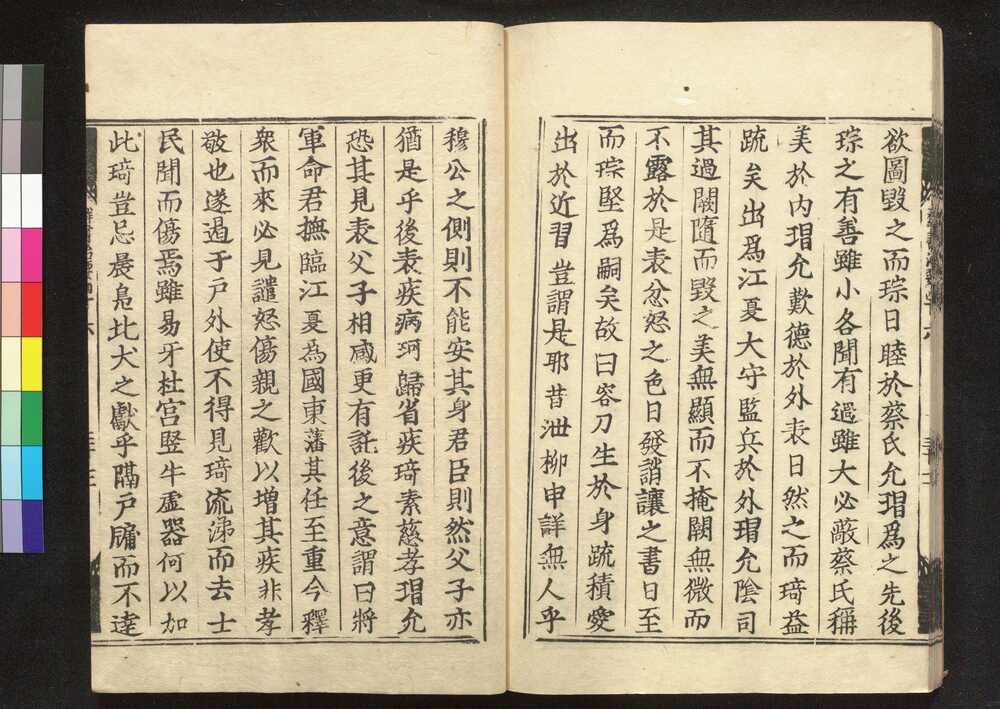 欲圖毀之而琮日睦於蔡氏允瑁爲之先後
琮之有善雖小各聞有過雖大必蔽蔡氏稱
美於內瑁允歎德於外表日然之而琦益
疏矣出爲江夏大守監兵於外瑁允陰司
其過闕隨而毀之美無顯而不掩闕無微而
不露於是表忿怒之色日發誚讓之書日至
而琮堅爲嗣矣故曰容刀生於身疏積愛
出於近習豈謂是耶昔泄柳申詳無人乎
穆公之側則不能安其身君臣則然父子亦
猶是乎後表疾病琦歸省疾琦素慈孝瑁允
恐其見表父子相感更有託後之意謂曰將
軍命君撫臨江夏為國東藩其任至重今釋
衆而來必見譴怒傷親之歡以增其疾非孝
敬也遂遏于戶外使不得見琦流涕而去士
民聞而傷焉雖易牙杜宮竪牛虛器何以加
此琦豈忘晨鳧北犬之獻乎隔戶牖而不達